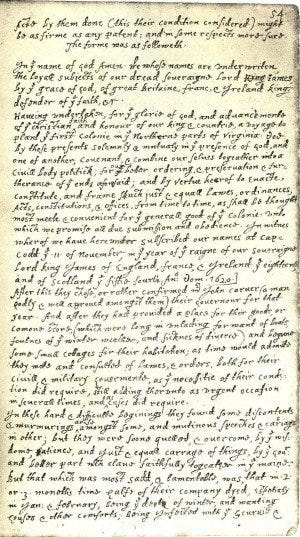 54
scte by them done (this their condition considered) might
be as firme as any patent; and in some respects more sure.
The forme was as followeth.
In yͤ name of god Amen. We whose names are underwriten,
the loyall subjects of our dread soveraigne Lord King James,
by yͤ grace of god, of great Britaine, franc, & Ireland king,
defender of yͤ faith, &c.
Haveing undertaken, for yͤ glorie of god, and advancemente
of yͤ christian faith and honour of our king & countrie, a voyage to
plant yͤ first colonie in yͤ Northerne parts of Virginia. Doe
by these presents solemnly & mutualy in yͤ presence of god, and
one of another, covenant, & combine our selves togeather into a
Civill body politick; for our better ordering, & preservation & fur-
therance of yͤ ends aforesaid; and by vertue hearof to enacte,
constitute, and frame shuch just & equall Lawes, ordinances,
Acts, constitutions, & offices, from time to time, as shall be thought
most meete & convenient for yͤ generall good of yͤ Colonie: unto
which we promise all due submission and obedience. In witnes
wherof we have hereunder subscribed our names at Cap-
Codd yͤ 11 of November, in yͤ year of yͤ raigne of our soveraigne
Lord king James of England, franc, & Ireland yͤ eighteenth
and of Scotland yͤ fiftie fourth. Ano Dom. 1620
After this they chose, or rather confirmed mr John Carver (a man
godly & well approved amongst them) their Governour for that
year. And after they had provided a place for their goods, or
comone store, (which were long in unlading for want of boats,
foulnes of yͤ winter weather, and sicknes of diverce) and begune
some small cottages for their habitation; as time would admitte
they mette and consulted of lawes, & orders, both for their
civill & military govermente, as yͤ necessitie of their condi-
tion did require, still adding therunto as urgent occasion
in severall times, and as cases did require.
In these hard & difficulte beginings they found some discontents
& murmurings arise amongst some, and mutinous speeches & carriags
in other; but they were soone quelled, & overcome, by yͤ wis-
dome, patience, and just & equall carrage of things, by yͤ Govr
and better part wch clave faithfully togeather in yͤ maine.
But that which was most sadd, & lamentable, was, that in 2
or 3 moneths time halfe of their company dyed, espetialy
in Jan: & february, being yͤ depth of winter, and wanting
houses & other comforts; being infected with yͤ Scurvie &